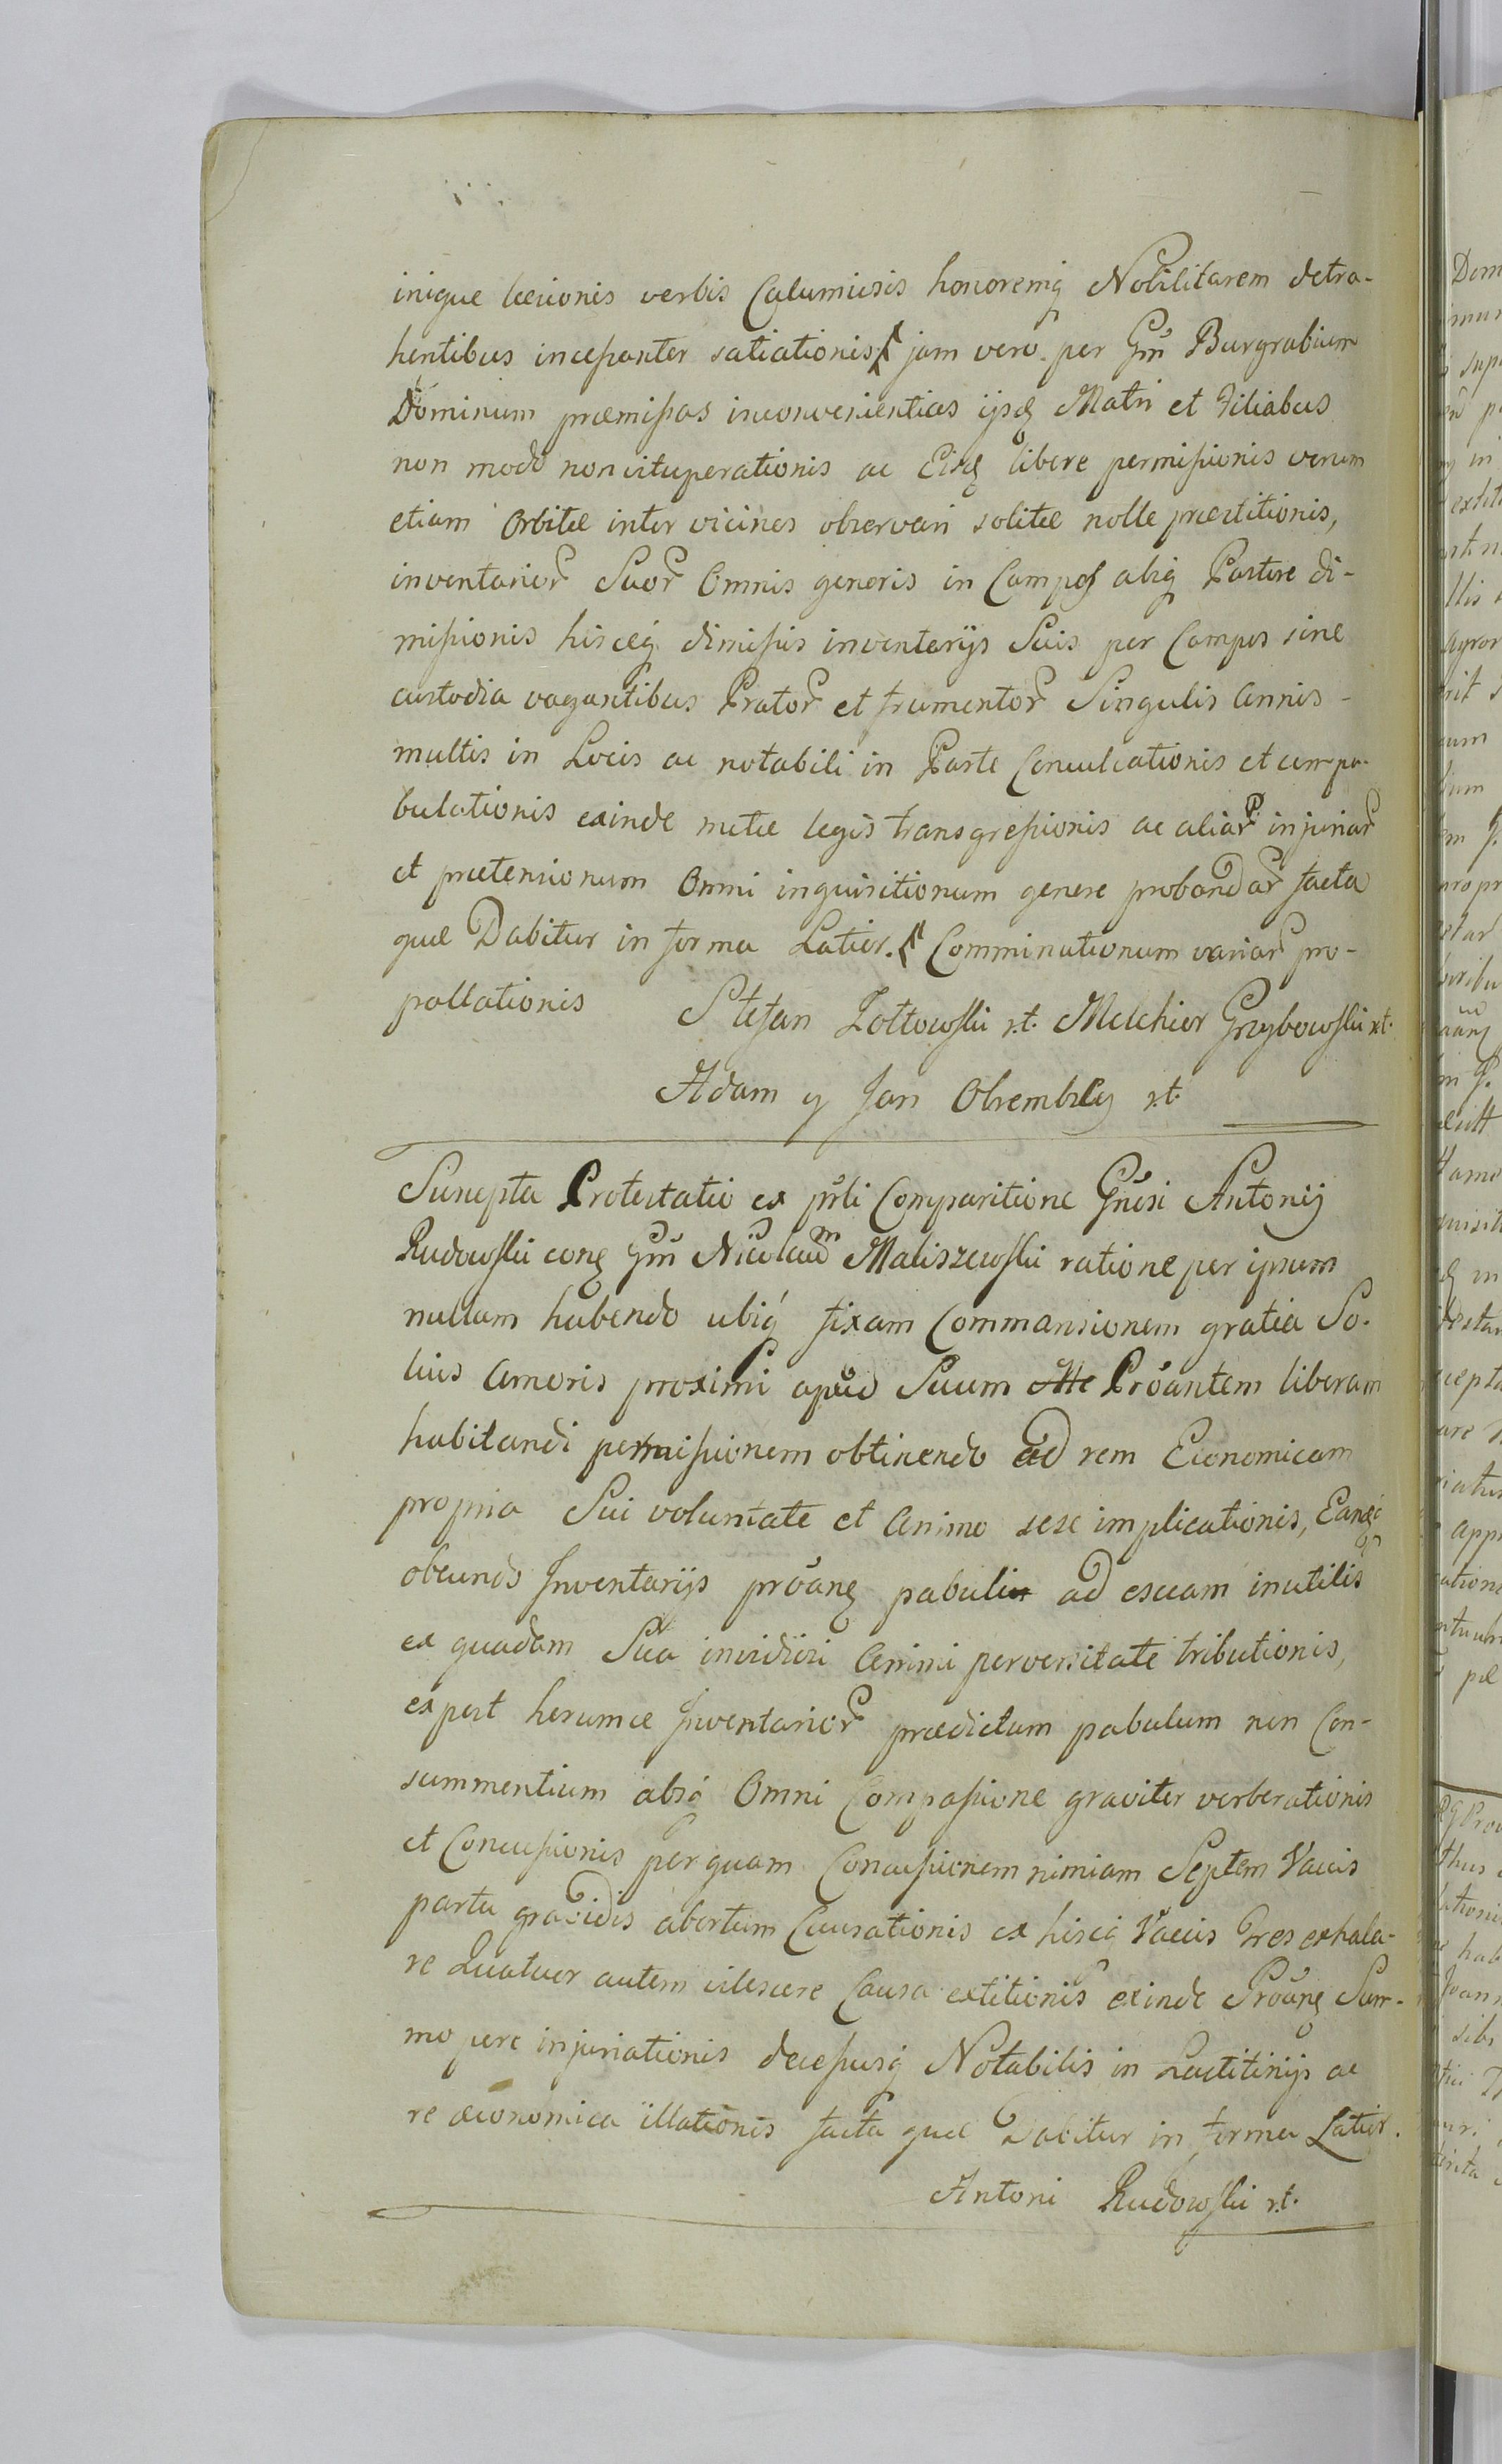 inique læsionis verbis Calumiosis honoremq Nobilitarem detra-
hentibus incessanter satiationis jam vero per Gm̃ Burgrabium
Dominum præmissas inconvenientias ijsq Matri et Filiabus
non modo non vituperationis ac Eisq libere permissionis verum
etiam Orbitæ inter vicinos observari solitæ nolle præstitionis,
inventarior Suor Omnis generis in Campos absq Pastore di-
missionis hisceq dimissis inventarijs Suis per Campos sine
custodia vagantibus Prator et frumentor Singulis Annis -
multis in Locis ac notabili in Parte Conculcationis et compa-
bulationis exinde metæ legis transgressionis ac aliar injuriar
et prætensionum Omni inquisitionum genere probandar facta
quæ Dabitur in forma Latior. Comminationum variar pro-
pallationis Stefan Zottowski r.t. Melchior Grzybowski r.t.
Adam y Jan Obremblcy r.t.
Suscepta Protestatio ex pñti Comparitione Gñosi Antonij
Rudowski conq Gm̃ Nicolaum Maliszewski ratione per ipsum
nullam habendo ubiq fixam Commansionem gratia So-
lius Amoris proximi apud Suum Prõantem liberam
habitandi permissionem obtinendo ad rem Economicam
propria Sui voluntate et Animo sese implicationis, Eandq
obeundo Inventarijs prõang pabuli ad escam inutilis
ex quadam Sua invidiosi Animi perversitate tributionis,
expost horumce Inventarior prædictum pabulum non Con-
summentium absq Omni Compassione graviter verberationis
et Concussionis per quam Concussionem nimiam Septem Vaccis
partu gravidis abortum Causationis ex hisce Vaccis Tres exhala-
re Quatuor autem vilescere Causa extitionis exinde Prõang Sum-
mo pere injuriationis decessusq Notabilis in Lactitinijs ac
re œconomica illationis facta quæ Dabitur in forma Latior.
Antoni Rudowski r.t.